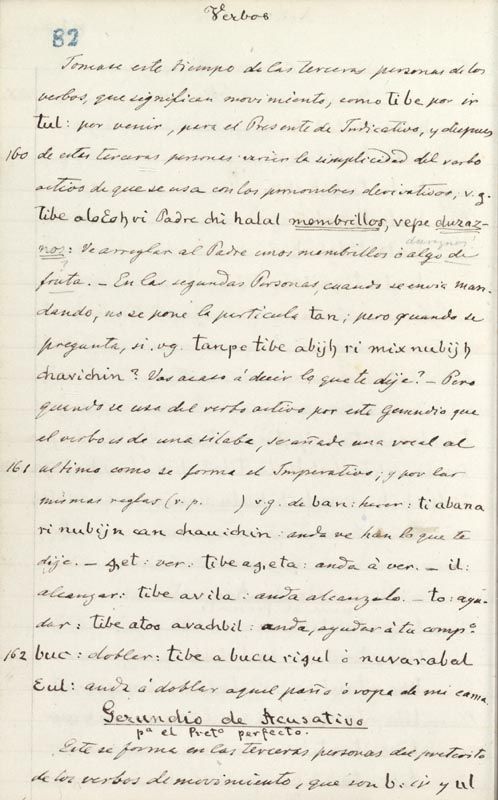 Verbos
82
Tomase este tiempo de las terceras personas de los
verbos, que significan movimiento, como tibe por ir
tul: por venir, para el Presente de Indicativo, y despues
160 de estas terceras personas venir la simplicidad del verbo
activo de que se usa con los pronombres derivativos, v.g.
tibe alo Eoh vi Padre chi halal membrillos, vepe duraz-
nos: Ve arreglar al Padre unos membrillos ó algo de
duraznos
fruta. — En las segundas Personas, cuando se envia man-
dando, no se pone la particula tan; pero quando se
pregunta, si. v.g. tanpe tibe abijh ri mix nubijh
chavichin? Vas acaso á decir lo que te dije? — Pero
quando se usa del verbo activo por este Gerundio que
el verbo es de una silaba, se añade una vocal al
161 ultimo como se forma el Imperativo; y por las
mismas reglas (v. p. ) v.g. de ban: hacer: ti abana
ri nubijn can chauichin: anda ve han lo que te
dije. — get: ver: tibe ag,eta: anda á ver. — il:
alcanzar: tibe avila: anda alcanzalo. — to: ayu-
dar: tibe atoo avachbil: anda, ayudar á tu compo.
162 buc: doblar: tibe abucu rigul ó nuvarabal
Eul: anda á doblar aquel paño ó ropa de mi cama
Gerundio de Acusativo
pa el Preto perfecto.
Este se forma en las terceras personas del preterito
de los verbos de movimiento, que son b: ir y ul